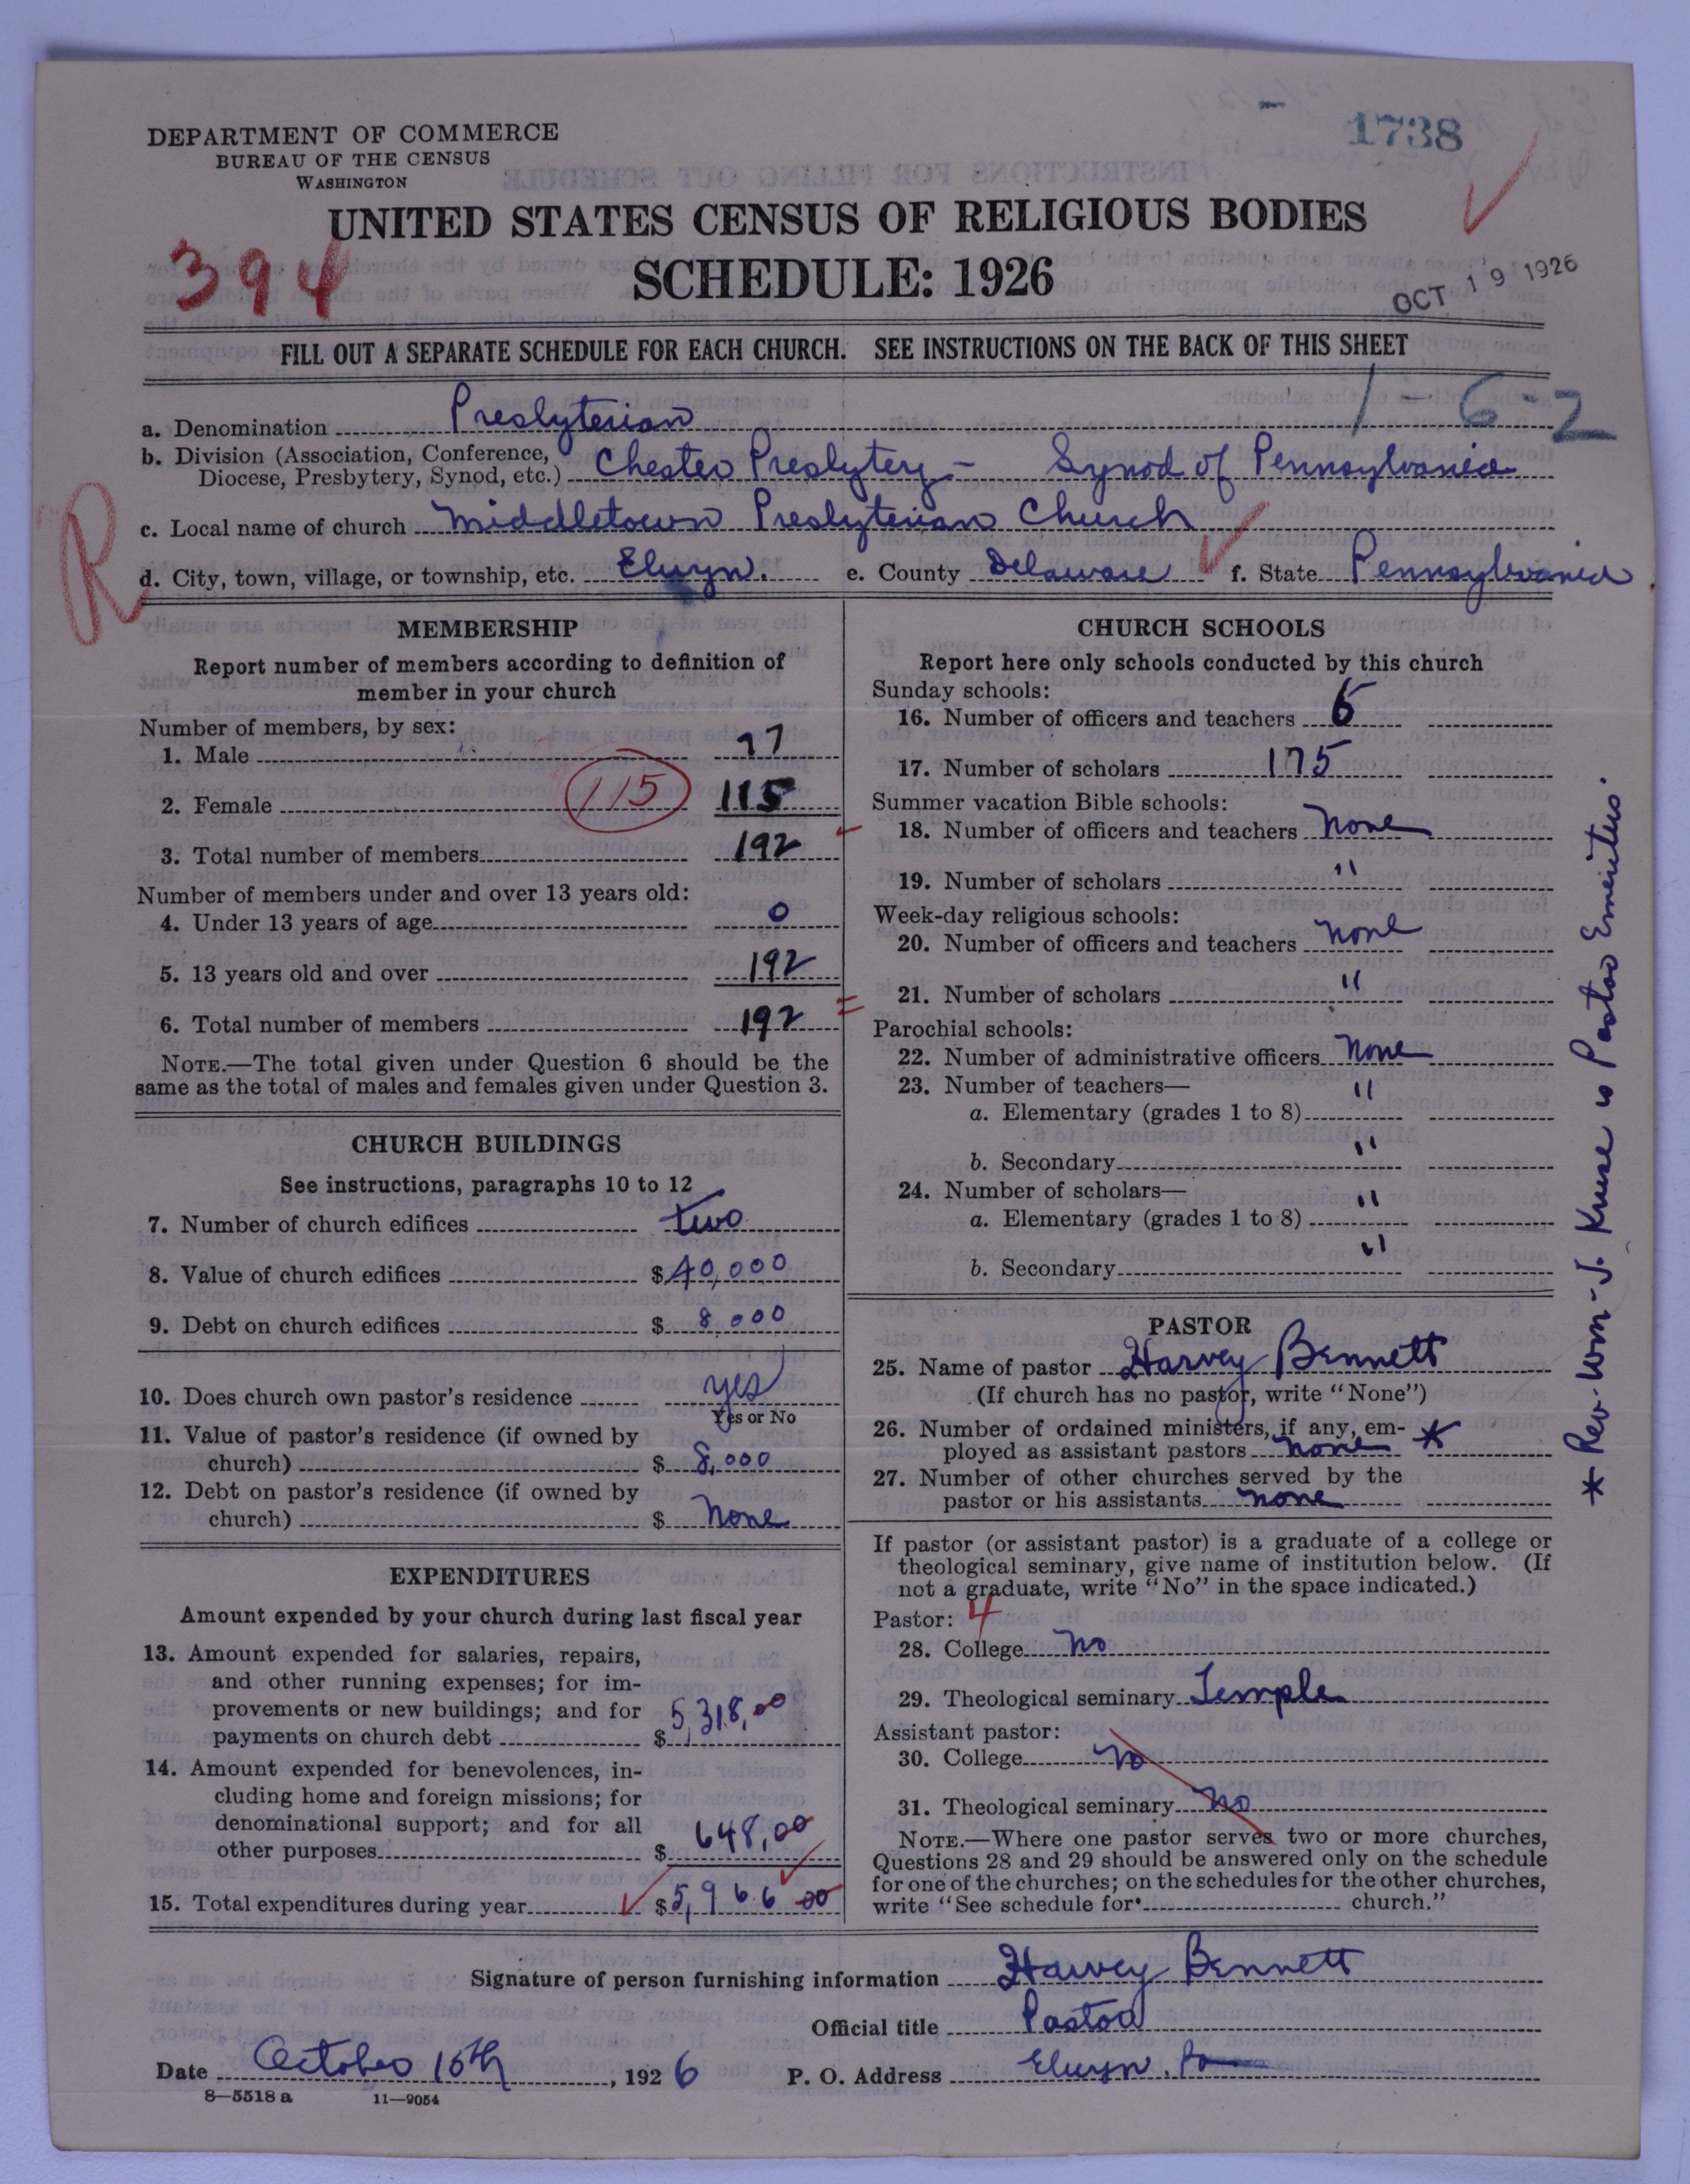 1738
DEPARTMENT OF COMMERCE
BUREAU OF THE CENSUS
WASHINGTON
UNITED STATES CENSUS OF RELIGIOUS BODIES
394
SCHEDULE: 1926
OCT 19 1926
FILL OUT A SEPARATE SCHEDULE FOR EACH CHURCH. SEE INSTRUCTIONS ON THE BACK OF THIS SHEET
1-6-2
a. Denomination Presbyterian
b. Division (Association, Conference, Diocese, Presbytery, Synod, etc.) Chester Presbytery - Synod of Pennsylvania
R
c. Local name of church Middletown Presbyterian Church
d. City, town, village, or township, etc. Elwyn. e. County Delaware f. State Pennsylvania
MEMBERSHIP
Report number of members according to definition of
member in your church
Number of members, by sex:
1. Male 77
2. Female 115 115
3. Total number of members 192
Number of members under and over 13 years old:
4. Under 13 years of age 0
5. 13 years old and over 192
6. Total number of members 192
NOTE.—The total given under Question 6 should be the
same as the total of males and females given under Question 3.
CHURCH BUILDINGS
See instructions, paragraphs 10 to 12
7. Number of church edifices two
8. Value of church edifices $40,000
9. Debt on church edifices $8,000
10. Does church own pastor's residence yes
Yes or No
11. Value of pastor's residence (if owned by
church) $8,000
12. Debt on pastor's residence (if owned by
church) $None
EXPENDITURES
Amount expended by your church during last fiscal year
13. Amount expended for salaries, repairs,
and other running expenses; for im-
provements or new buildings; and for
payments on church debt $5,318,00
14. Amount expended for benevolences, in-
cluding home and foreign missions; for
denominational support; and for all
other purposes $648,00
15. Total expenditures during year $5,966 00
CHURCH SCHOOLS
Report here only schools conducted by this church
Sunday schools:
16. Number of officers and teachers 6
17. Number of scholars 175
Summer vacation Bible schools:
18. Number of officers and teachers none
19. Number of scholars "
Week-day religious schools:
20. Number of officers and teachers none
21. Number of scholars "
Parochial schools:
22. Number of administrative officers none
23. Number of teachers— "
a. Elementary (grades 1 to 8)
b. Secondary "
24. Number of scholars— "
a. Elementary (grades 1 to 8)
b. Secondary "
PASTOR
25. Name of pastor Harvey Bennett
(If church has no pastor, write "None")
26. Number of ordained ministers, if any, em-
ployed as assistant pastors none *
27. Number of other churches served by the
pastor or his assistants none
If pastor (or assistant pastor) is a graduate of a college or
theological seminary, give name of institution below. (If
not a graduate, write "No" in the space indicated.)
Pastor: 4
28. College No
29. Theological seminary Temple
Assistant pastor:
30. College No
31. Theological seminary No
NOTE.—Where one pastor serves two or more churches,
Questions 28 and 29 should be answered only on the schedule
for one of the churches; on the schedules for the other churches,
write "See schedule for church."
* Rev. Wm. J. Kruse is Pastor Emeritus.
Signature of person furnishing information Harvey Bennett
Official title Pastor
Date October 15th, 1926 P. O. Address Elwyn, Pa
8—5518 a 11—9054